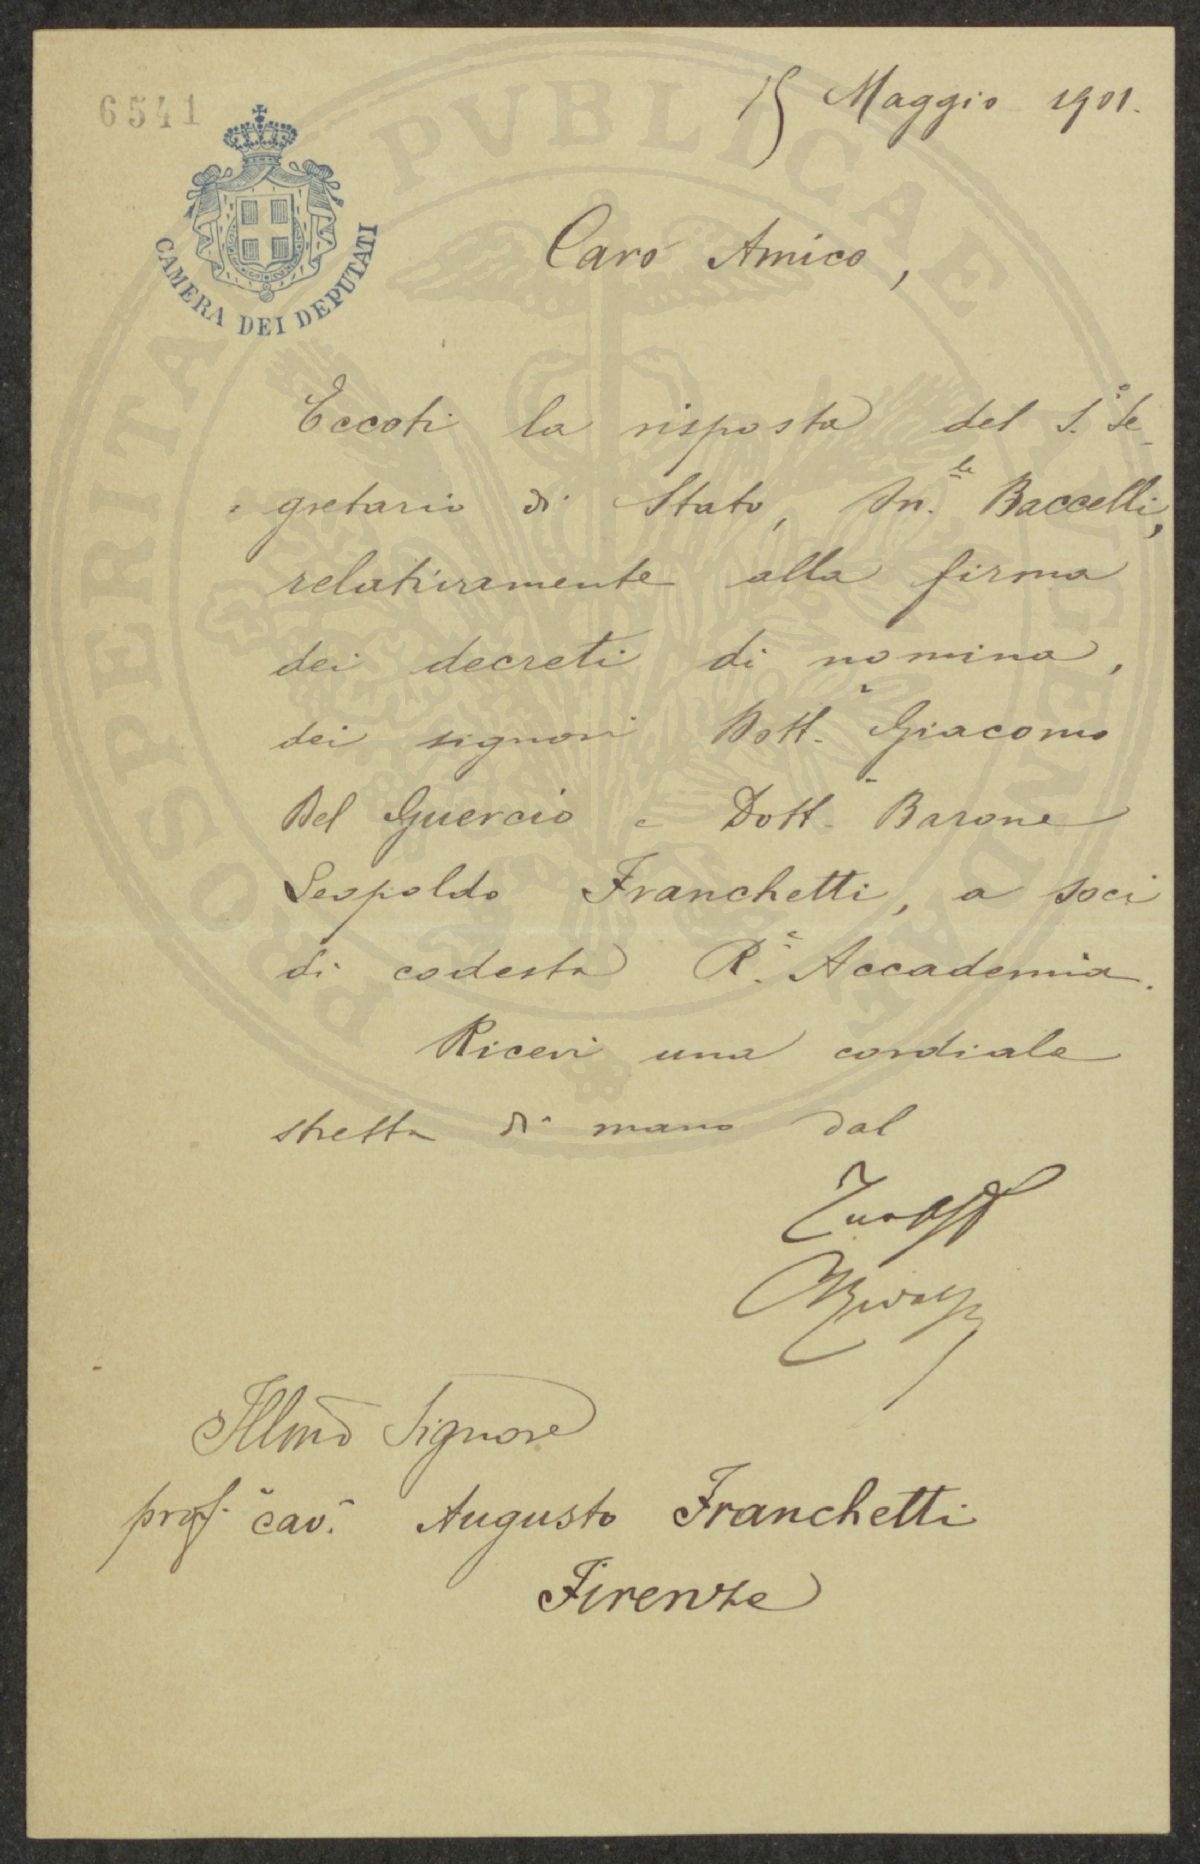 6541
15 Maggio 1901.
CAMERA DEI DEPUTATI
PROSPERITATI PVBLICAE AVGENDAE
Caro Amico,
Eccoti la risposta del S.º Se-
gretario di Stato, On.le Baccelli,
relativamente alla firma
dei decreti di nomina,
dei signori Dott. Giacomo
Del Guercio e Dott. Barone
Leopoldo Franchetti, a soci
di codesta R. Accademia.
Ricevi una cordiale
stretta di mano dal
Illmo Signore
prof. cav. Augusto Franchetti
Firenze